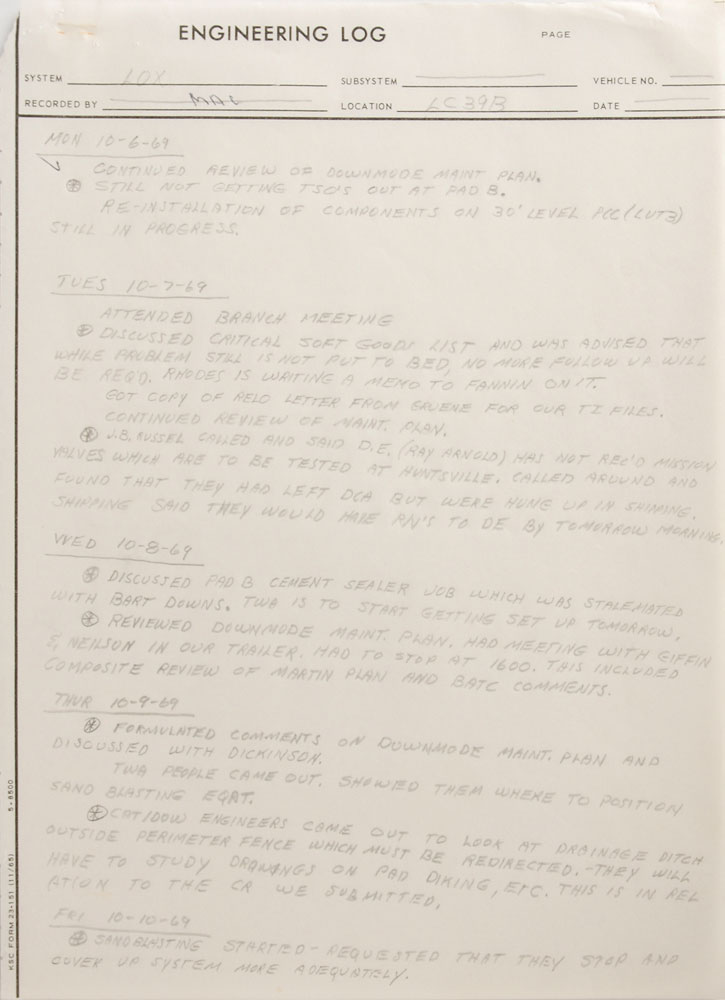 ENGINEERING LOG
PAGE
SYSTEM LOX
SUBSYSTEM
VEHICLE NO.
RECORDED BY MAC
LOCATION LC39B
DATE
MON 10-6-69
CONTINUED REVIEW OF DOWNMODE MAINT PLAN.
STILL NOT GETTING TSO'S OUT AT PAD B.
RE-INSTALLATION OF COMPONENTS ON 30' LEVEL PCC (LUT3)
STILL IN PROGRESS.
TUES 10-7-69
ATTENDED BRANCH MEETING
DISCUSSED CRITICAL SOFT GOODS LIST AND WAS ADVISED THAT
WHILE PROBLEM STILL IS NOT PUT TO BED, NO MORE FOLLOW UP WILL
BE REQ'D. RHODES IS WRITING A MEMO TO FANNIN ON IT.
GOT COPY OF RELO LETTER FROM GRUENE FOR OUR TI FILES.
CONTINUED REVIEW OF MAINT. PLAN.
J.B. RUSSEL CALLED AND SAID D.E. (RAY ARNOLD) HAS NOT REC'D MISSION
VALVES WHICH ARE TO BE TESTED AT HUNTSVILLE. CALLED AROUND AND
FOUND THAT THEY HAD LEFT DCA BUT WERE HUNG UP IN SHIPPING.
SHIPPING SAID THEY WOULD HAVE RN'S TO DE BY TOMORROW MORNING.
WED 10-8-69
DISCUSSED PAD B CEMENT SEALER JOB WHICH WAS STALEMATED
WITH BART DOWNS. TWA IS TO START GETTING SET UP TOMORROW.
REVIEWED DOWNMODE MAINT. PLAN. HAD MEETING WITH GIFFIN
& NEILSON IN OUR TRAILER. HAD TO STOP AT 1600. THIS INCLUDED
COMPOSITE REVIEW OF MARTIN PLAN AND BATC COMMENTS.
THUR 10-9-69
FORMULATED COMMENTS ON DOWNMODE MAINT. PLAN AND
DISCUSSED WITH DICKINSON.
TWA PEOPLE CAME OUT. SHOWED THEM WHERE TO POSITION
SAND BLASTING EQPT.
CAT/DOW ENGINEERS CAME OUT TO LOOK AT DRAINAGE DITCH
OUTSIDE PERIMETER FENCE WHICH MUST BE REDIRECTED. THEY WILL
HAVE TO STUDY DRAWINGS ON PAD DIKING, ETC. THIS IS IN REL
ATION TO THE CR WE SUBMITTED.
FRI 10-10-69
SANDBLASTING STARTED - REQUESTED THAT THEY STOP AND
COVER UP SYSTEM MORE ADEQUATELY.
KSC FORM 23-151 (11/65) 5-6500